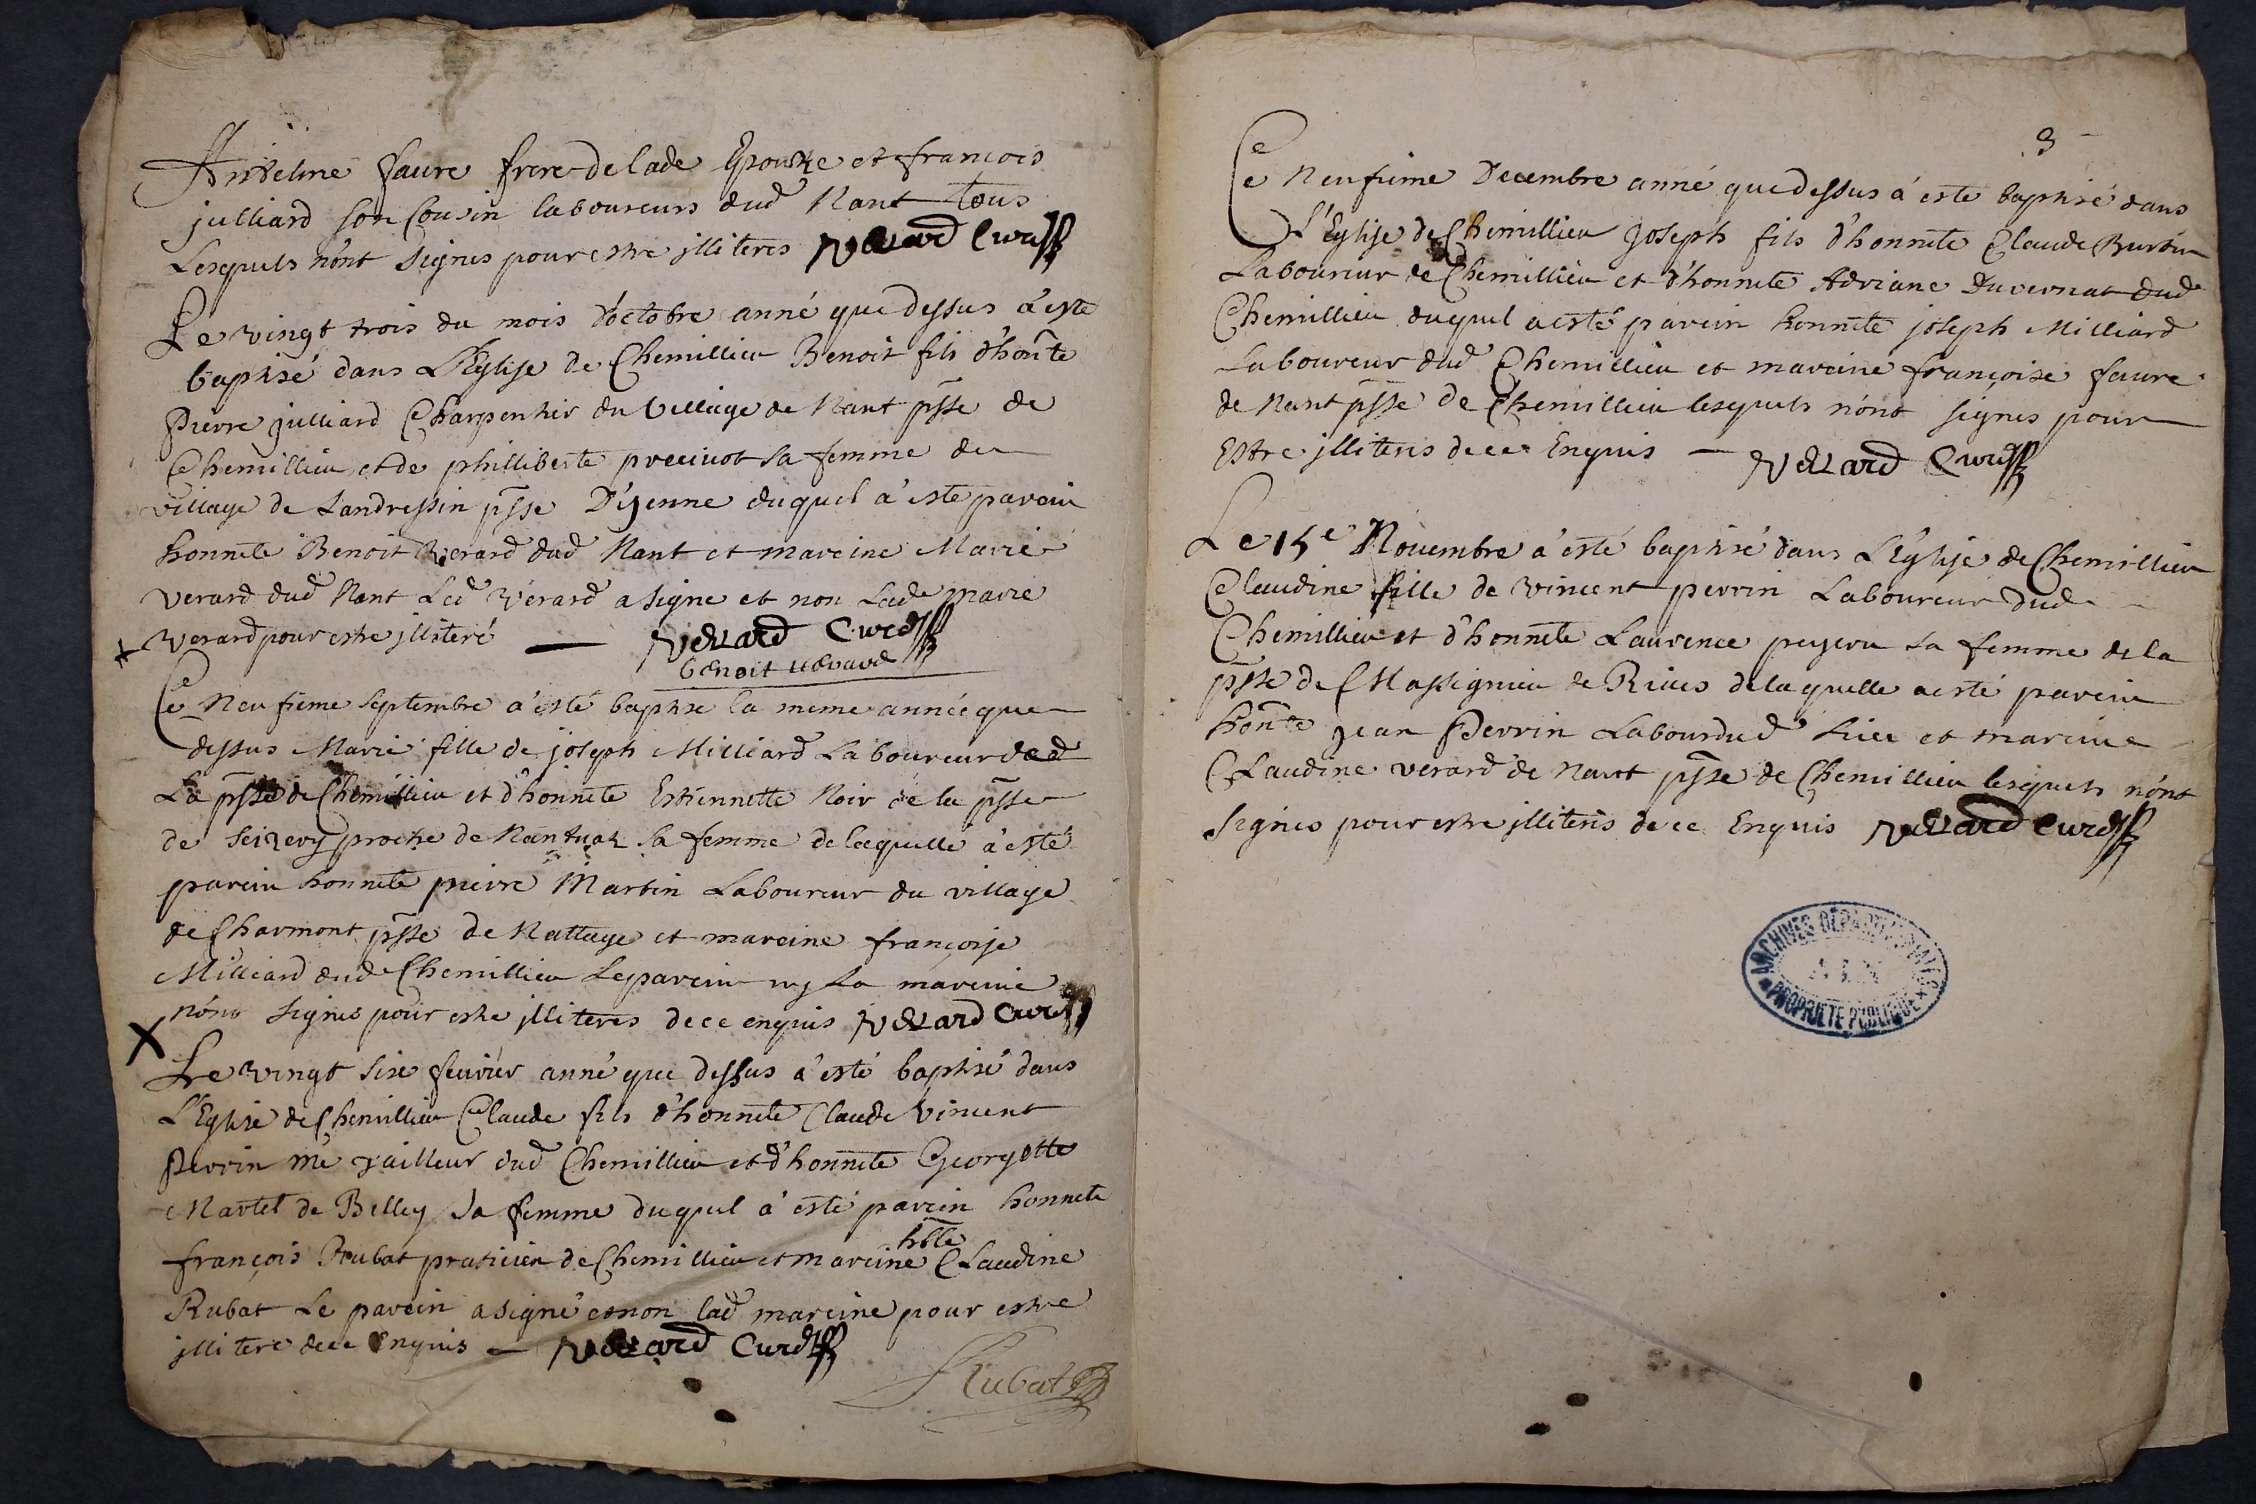 Antelme faure frere de lade Epouse et françois
julliard son Cousin laboureurs dud Nant tous
Lesquels n'ont signes pour estre jlliteres Verard Curé
Le vingt trois du mois d'octobre anné que dessus à esté
baptisé dans L'Eglise de Chemillieu Benoit fils d'honte
Pierre julliard Charpentier du Village de Nant psse de
Chemillieu et de philliberte sa femme du
village de Landressin psse D'yenne duquel à este parein
honnete Benoit Verard dud Nant et mareine Marie
verard dud Nant Led Verard a signe et non Lade marie
Verard pour estre jlliteré Verard Curé
benoit verard
Ce Neufieme septembre a esté baptise la meme année que
dessus Marie fille de joseph Milliard Laboureur ded
La psse de Chemillieu et d'honnete Estiennette Noir de la psse
de proche de Nantuaz sa femme de laquelle à esté
parein honnete pierre Martin Laboureur du village
de Charmont psse de Nattage et mareine françoise
Milliard dud Chemillieu Le parein ny La mareine
n'ono signes pour estre jlliteres de ce enquis Verard Curé
Le vingt six feuvrier anné que dessus a esté baptisé dans
L'Eglise de Chemillieu Claude fils d'honnete Claude Vincent
Perrin me tailleur dud Chemillieu et d'honnete Georgette
Martel de Belley sa femme duquel à esté parein honnete
françois Rubat praticien de Chemillieu et mareine hble Claudine
Rubat Le parein a signé et non lad mareine pour estre
jllitere de ce Enquis Verard Curé
Rubat
3
Ce Neufieme Decembre anné que dessus á este baptisé dans
L'Eglise de Chemillieu Joseph fils d'honnete Claude Burtin
Laboureur de Chemillieu et d'honnete Adriane Duvernat dud
Chemillieu duquel a esté parein honnete joseph Milliard
Laboureur dud Chemillieu et mareine françoise faure
de Nant psse de Chemillieu lesquels n'ont signes pour
Estre jlliteres de ce Enquis Verard Curé
Le 15e Nouembre a esté baptisé dans L'Eglise de Chemillieu
Claudine fille de vincent perrin Laboureur dud
Chemillieu et d'honnete Laurence sa femme de la
psse de Massignieu de Riues de laquelle a esté parein
honte jean Perrin Labour dud Lieu et mareine
Claudine verard de Nant psse de Chemillieu lesquels n'ont
signes pour estre jlliteres de ce Enquis Verard Curé
ARCHIVES DÉPARTEMENTALES
AIN
PROPRIÉTÉ PUBLIQUE